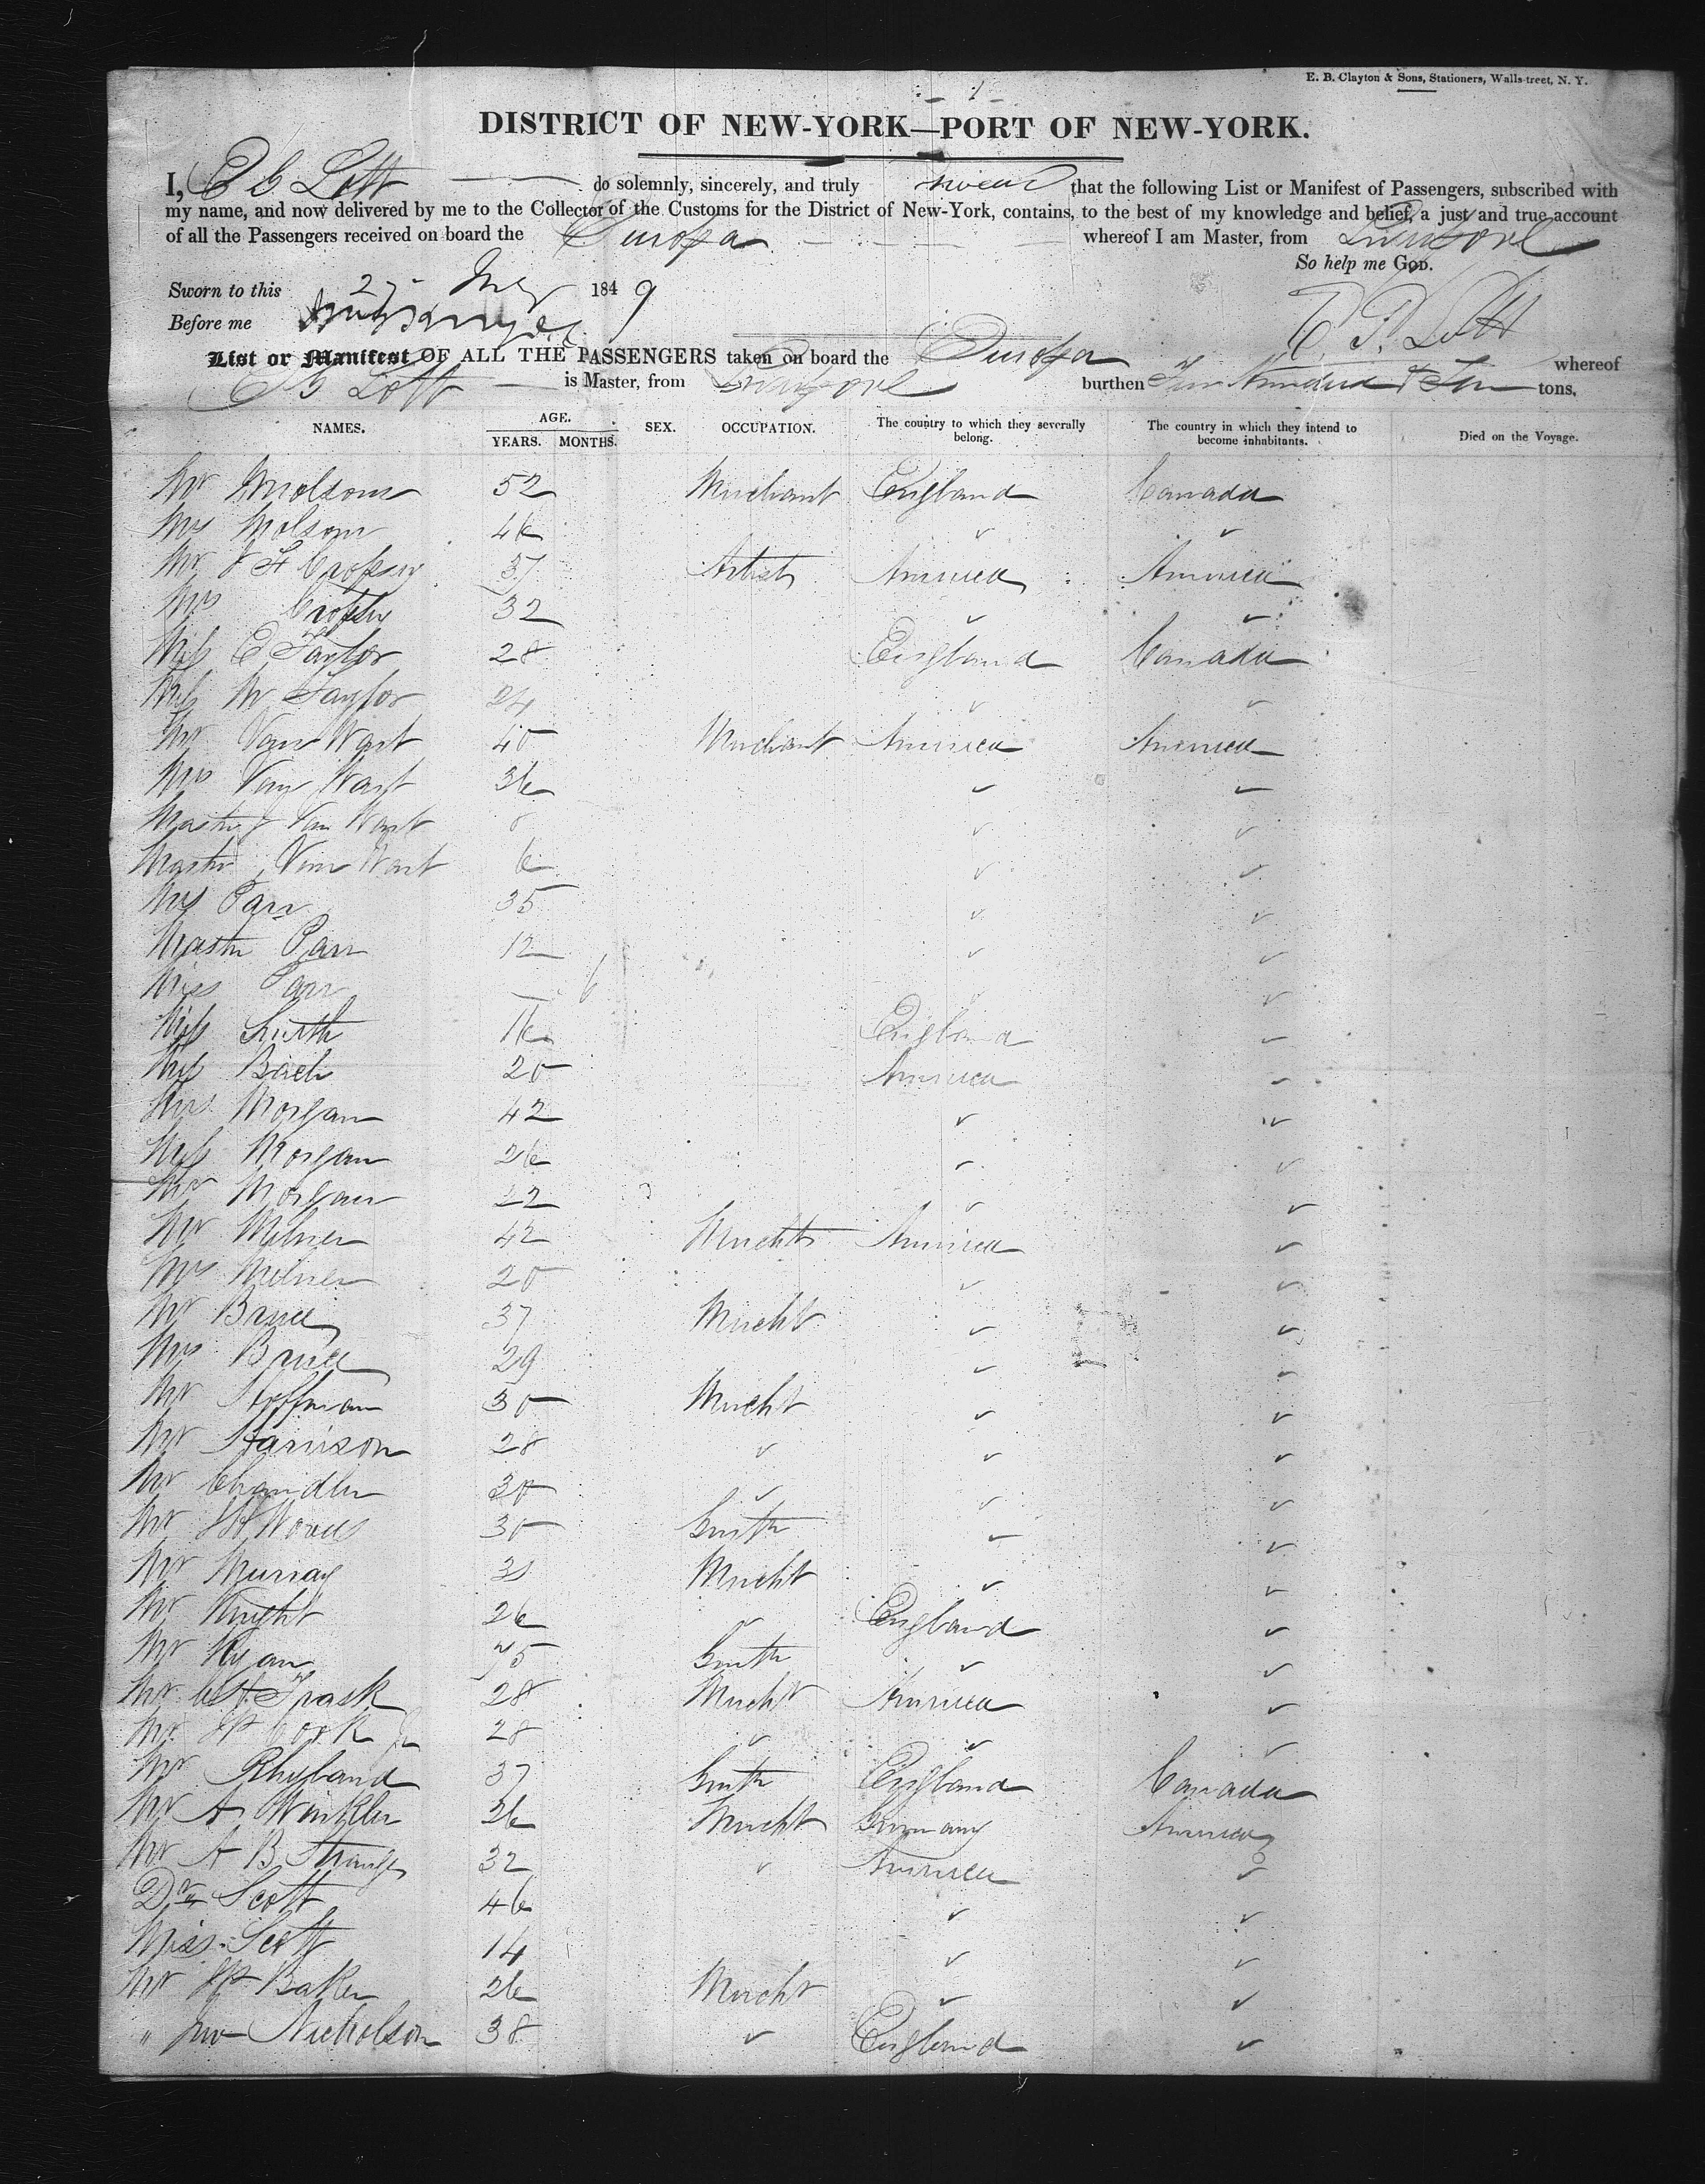 1
E. B. Clayton & Sons, Stationers, Wall-street, N. Y.
DISTRICT OF NEW-YORK—PORT OF NEW-YORK.
I, E G Lott do solemnly, sincerely, and truly swear that the following List or Manifest of Passengers, subscribed with
my name, and now delivered by me to the Collector of the Customs for the District of New-York, contains, to the best of my knowledge and belief, a just and true account
of all the Passengers received on board the Europa whereof I am Master, from Liverpool
So help me GOD.
Sworn to this 27 1849
Before me
E. G. Lott
List or Manifest OF ALL THE PASSENGERS taken on board the Europa whereof
E G Lott is Master, from Liverpool burthen Hundred & Ten tons.
NAMES. AGE. YEARS. MONTHS. SEX. OCCUPATION. The country to which they severally belong. The country in which they intend to become inhabitants. Died on the Voyage.
Mr Molsom 52 Merchant England Canada
Mrs Molsom 46 " "
Mr J F Cropsey 37 Artist America America
Mrs Cropsey 32 " "
Miss E Taylor 28 England Canada
Miss M Taylor 24 " "
Mr Van Wart 40 Merchant America America
Mrs Van Wart 36 " "
Master J Van Wart 8 " "
Master Van Wart 6 " "
Mrs Parr 35 " "
Master Parr 12 " "
Miss Parr 6 "
Miss Smith 16 England "
Miss Bach 20 America "
Mrs Morgan 42 " "
Miss Morgan 26 " "
Mr Morgan 22 " "
Mr Milner 42 Merchts America "
Mrs Milner 20 " "
Mr Bruce 37 Mercht " "
Mrs Bruce 29 " "
Mr Hoffman 30 Mercht " "
Mr Harrison 28 " " "
Mr Chandler 30 " " "
Mr Woods 30 Gentn " "
Mr Murray 31 Mercht " "
Mr Knight 26 " England "
Mr Ryan 75 Gentn " "
Mr Trask 28 Mercht America "
Mr JP Cook Jr 28 " " "
Mr Rhyband 37 Gentn England Canada
Mr A Winkler 26 Mercht Germany America
Mr A B Strange 32 " America "
Dr Scott 46 " "
Miss Scott 14 " "
Mr JP Baker 26 Mercht " "
" Jno Nicholson 38 " England "